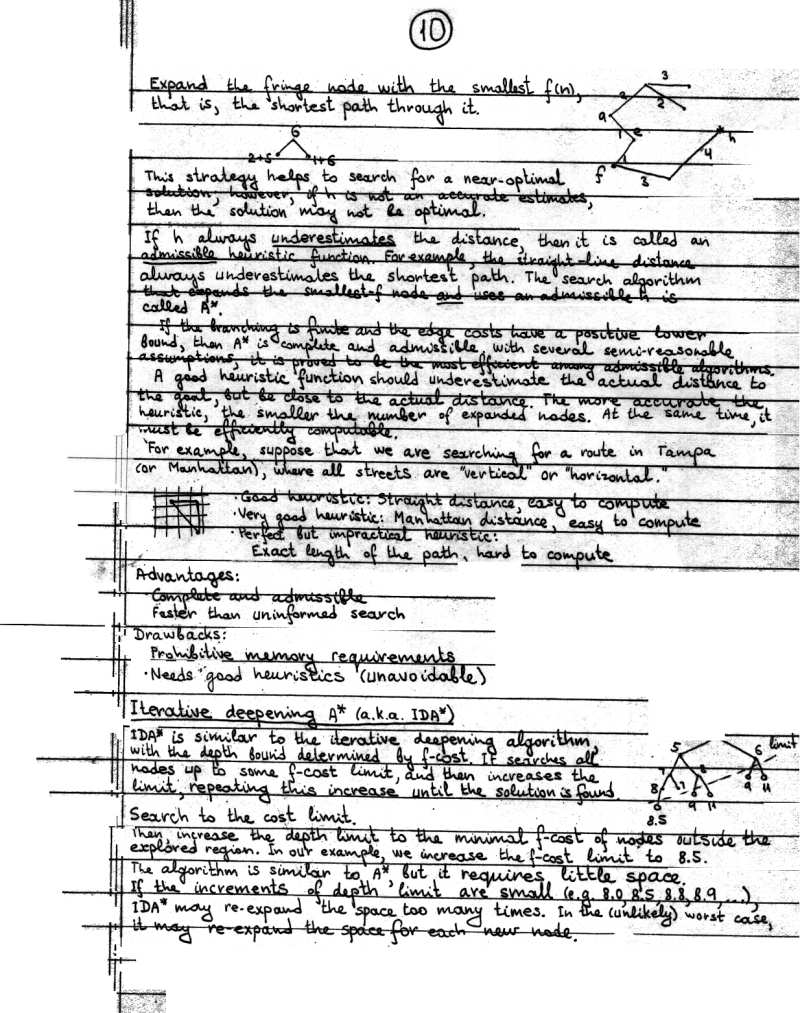 10
Expand the fringe node with the smallest f(n),
that is, the shortest path through it.
3
2
2
a
1
e
h
6
2+5
1+6
4
f
1
3
This strategy helps to search for a near-optimal
solution, however, if h is not an accurate estimates,
then the solution may not be optimal.
If h always underestimates the distance, then it is called an
admissible heuristic function. For example, the straight-line distance
always underestimates the shortest path. The search algorithm
that expands the smallest-f node and uses an admissible h is
called A*.
If the branching is finite and the edge costs have a positive lower
bound, then A* is complete and admissible, with several semi-reasonable
assumptions, it is proved to be the most efficient among admissible algorithms.
A good heuristic function should underestimate the actual distance to
the goal, but be close to the actual distance. The more accurate the
heuristic, the smaller the number of expanded nodes. At the same time, it
must be efficiently computable.
For example, suppose that we are searching for a route in Tampa
(or Manhattan), where all streets are "vertical" or "horizontal."
· Good heuristic: Straight distance, easy to compute
· Very good heuristic: Manhattan distance, easy to compute
· Perfect but impractical heuristic:
Exact length of the path, hard to compute
Advantages:
· Complete and admissible
Faster than uninformed search
Drawbacks:
Prohibitive memory requirements
· Needs good heuristics (unavoidable)
Iterative deepening A* (a.k.a. IDA*)
IDA* is similar to the iterative deepening algorithm,
with the depth bound determined by f-cost. It searches all
nodes up to some f-cost limit, and then increases the
limit, repeating this increase until the solution is found.
limit
5
6
7
8
8
7
9
11
9
11
8.5
Search to the cost limit.
Then increase the depth limit to the minimal f-cost of nodes outside the
explored region. In our example, we increase the f-cost limit to 8.5.
The algorithm is similar to A* but it requires little space.
If the increments of depth limit are small (e.g. 8.0, 8.5, 8.8, 8.9, ...),
IDA* may re-expand the space too many times. In the (unlikely) worst case,
it may re-expand the space for each new node.